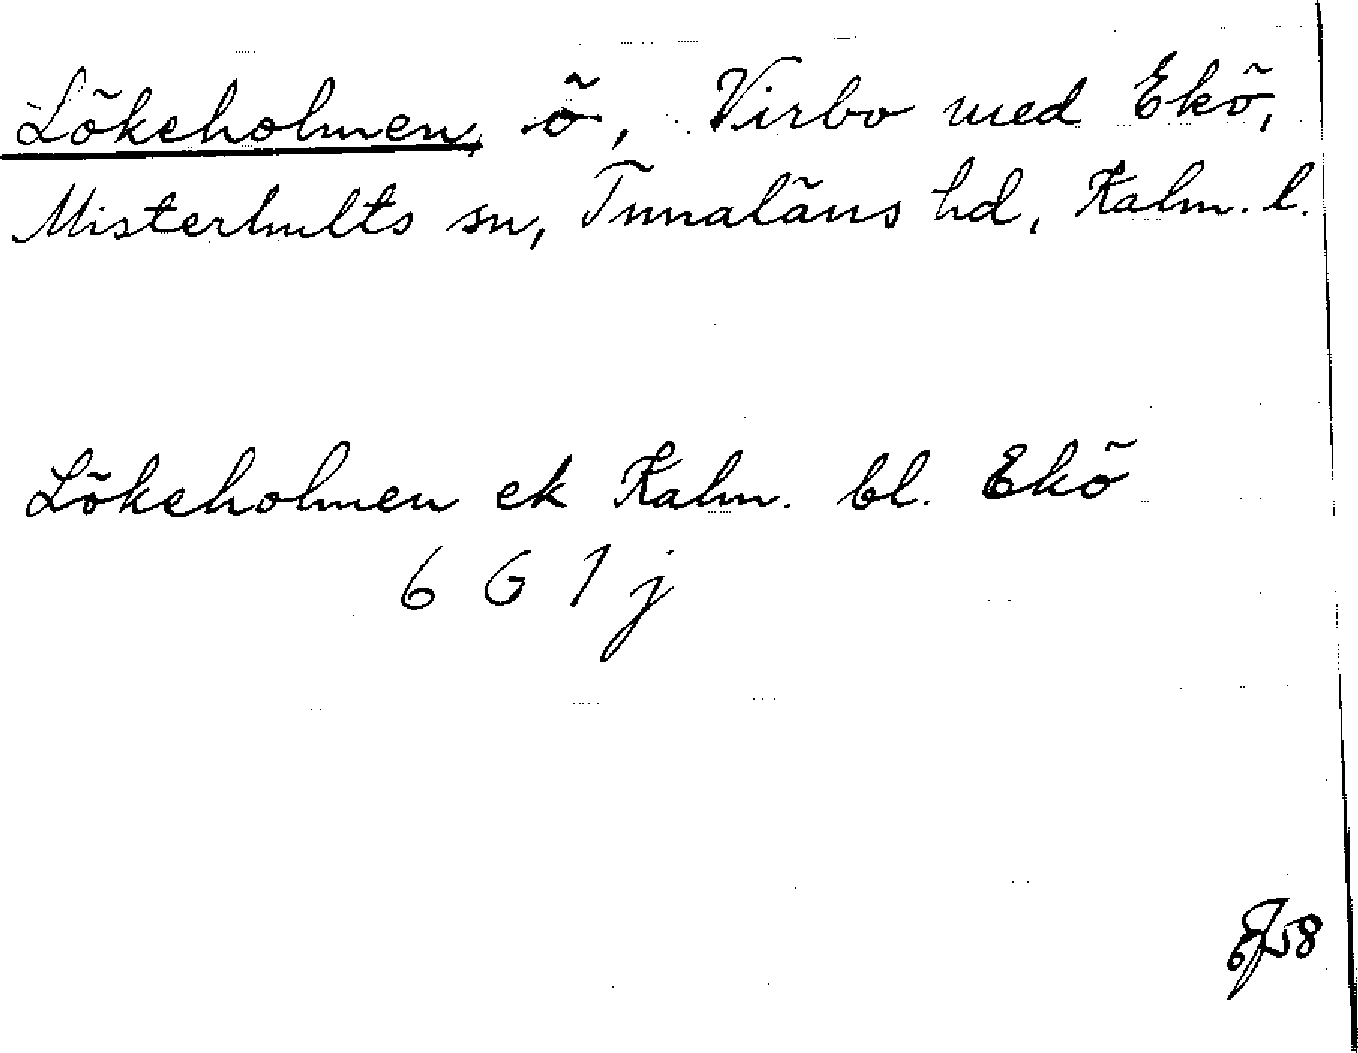 Lökeholmen, ö, Virbo med Ekö,
Misterhults sn, Tunaläns hd, Kalm. l.
Lökeholmen ek Kalm. bl. Ekö
6 G 1 j